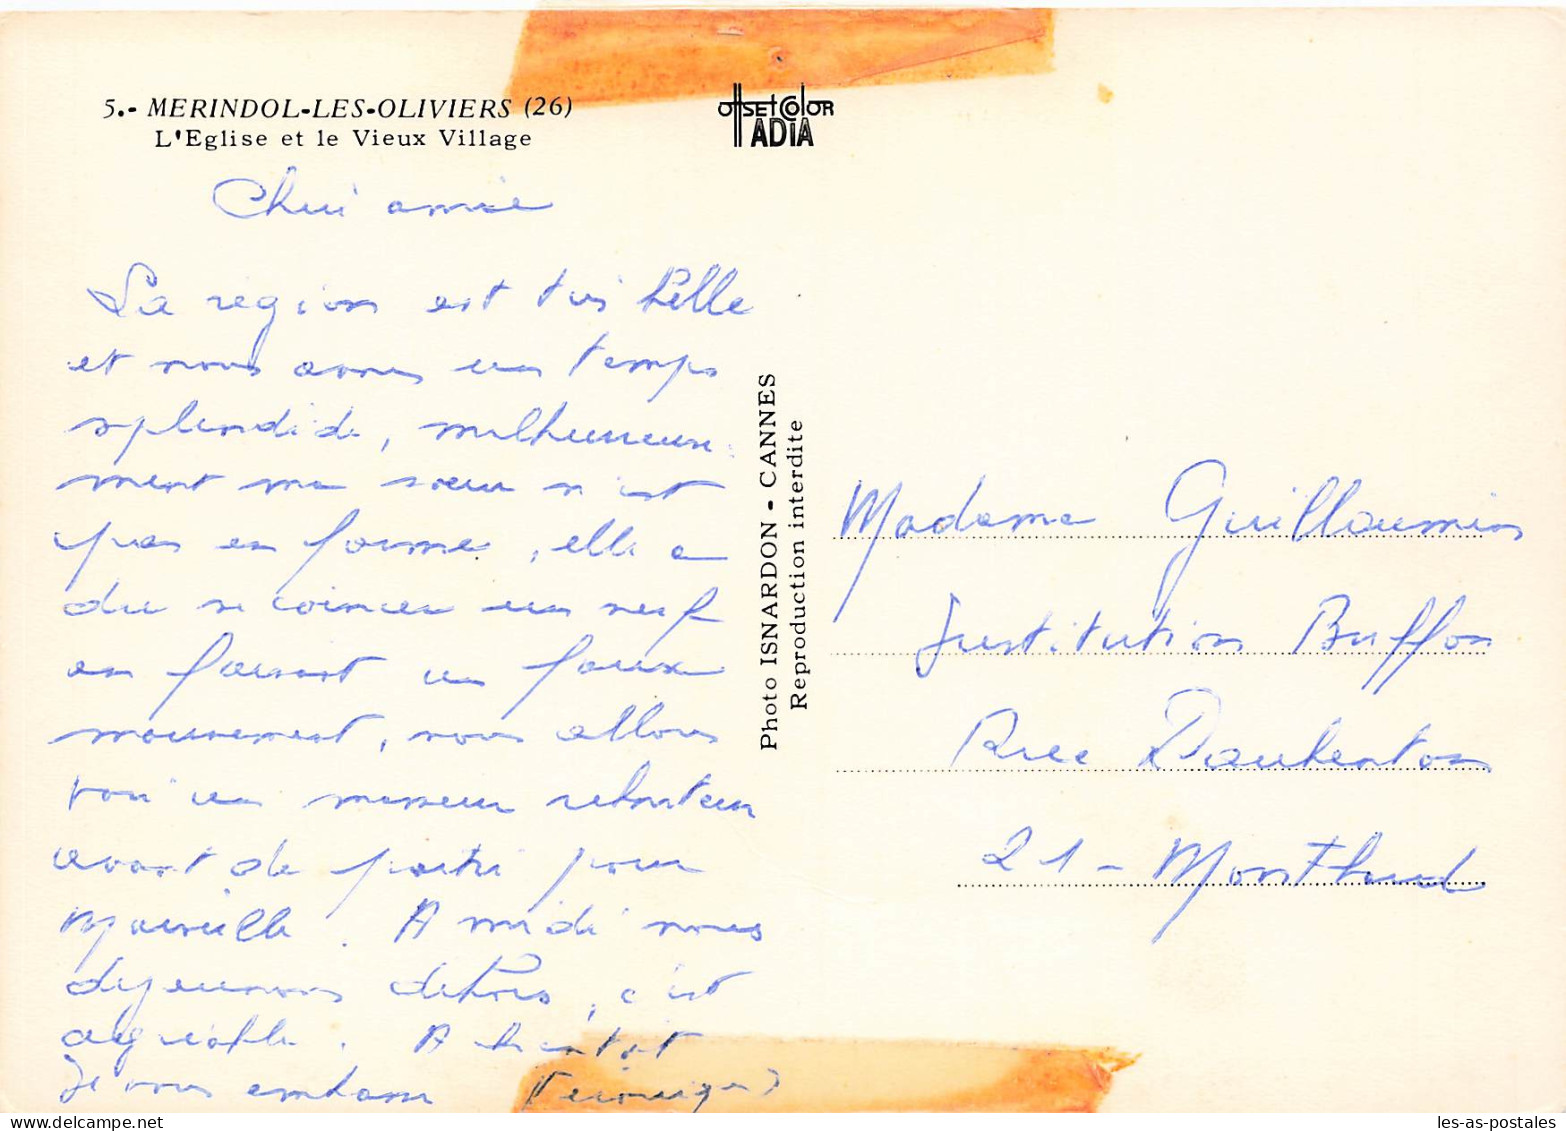 5.- MERINDOL-LES-OLIVIERS (26)
L'Eglise et le Vieux Village
offset color
ADIA
Chère amie
La région est très belle
et nous avons un temps
splendide, malheureuse-
ment ma soeur n'est
pas en forme, elle a
du se coincer un nerf
en faisant un faux
mouvement, nous allons
voir un masseur rebouteux
avant de partir pour
A midi nous
déjeunons dehors, c'est
agréable. A bientôt
Je vous embrasse
Photo ISNARDON - CANNES
Reproduction interdite
Madame Guillaumin
Institution Buffon
Rue Daubenton
21 - Montbard
les-as-postales